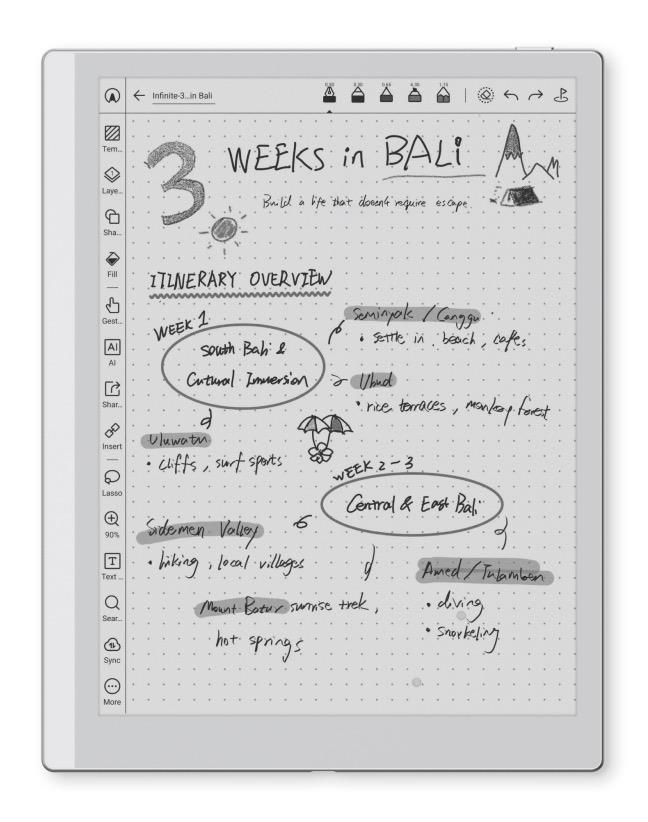 Infinite-3...in Bali
0.50 0.30 0.65 4.30 1.15
Tem...
Laye...
Sha...
Fill
Gest...
AI
AI
Shar...
Insert
Lasso
90%
Text ...
Sear...
Sync
More
3 WEEKS in BALi
Build a life that doesn't require escape.
ITINERARY OVERVIEW
WEEK 1
South Bali &
Cutural Immersion
Seminyak / Canggu
• settle in, beach, cafes
Ubud
• rice terraces, monkey forest
Uluwatu
• cliffs, surf spots
WEEK 2-3
Central & East Bali
Sidemen Valley
• hiking, local villages
Mount Batur sunrise trek,
hot springs
Amed / Tulamben
• diving
• snorkeling